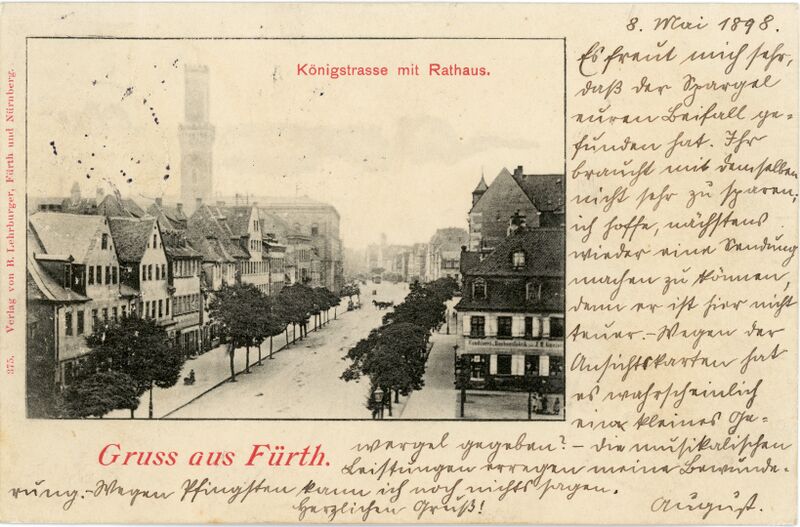 8. Mai 1898.
Es freut mich sehr,
daß der Spargel
euren Beifall ge-
funden hat. Ihr
braucht mit demselben
nicht sehr zu sparen,
ich hoffe, nächstens
wieder eine Sendung
machen zu können,
denn er ist hier nicht
teuer. - Wegen der
Ansichtskarten hat
es wahrscheinlich
ein kleines Ge-
wergel gegeben? - Die musikalischen
Leistungen erregen meine Bewunde-
rung. - Wegen Pfingsten kann ich noch nichts sagen.
Herzlichen Gruß!
August.
Königstrasse mit Rathaus.
Gruss aus Fürth.
375. Verlag von B. Lehrburger, Fürth und Nürnberg.